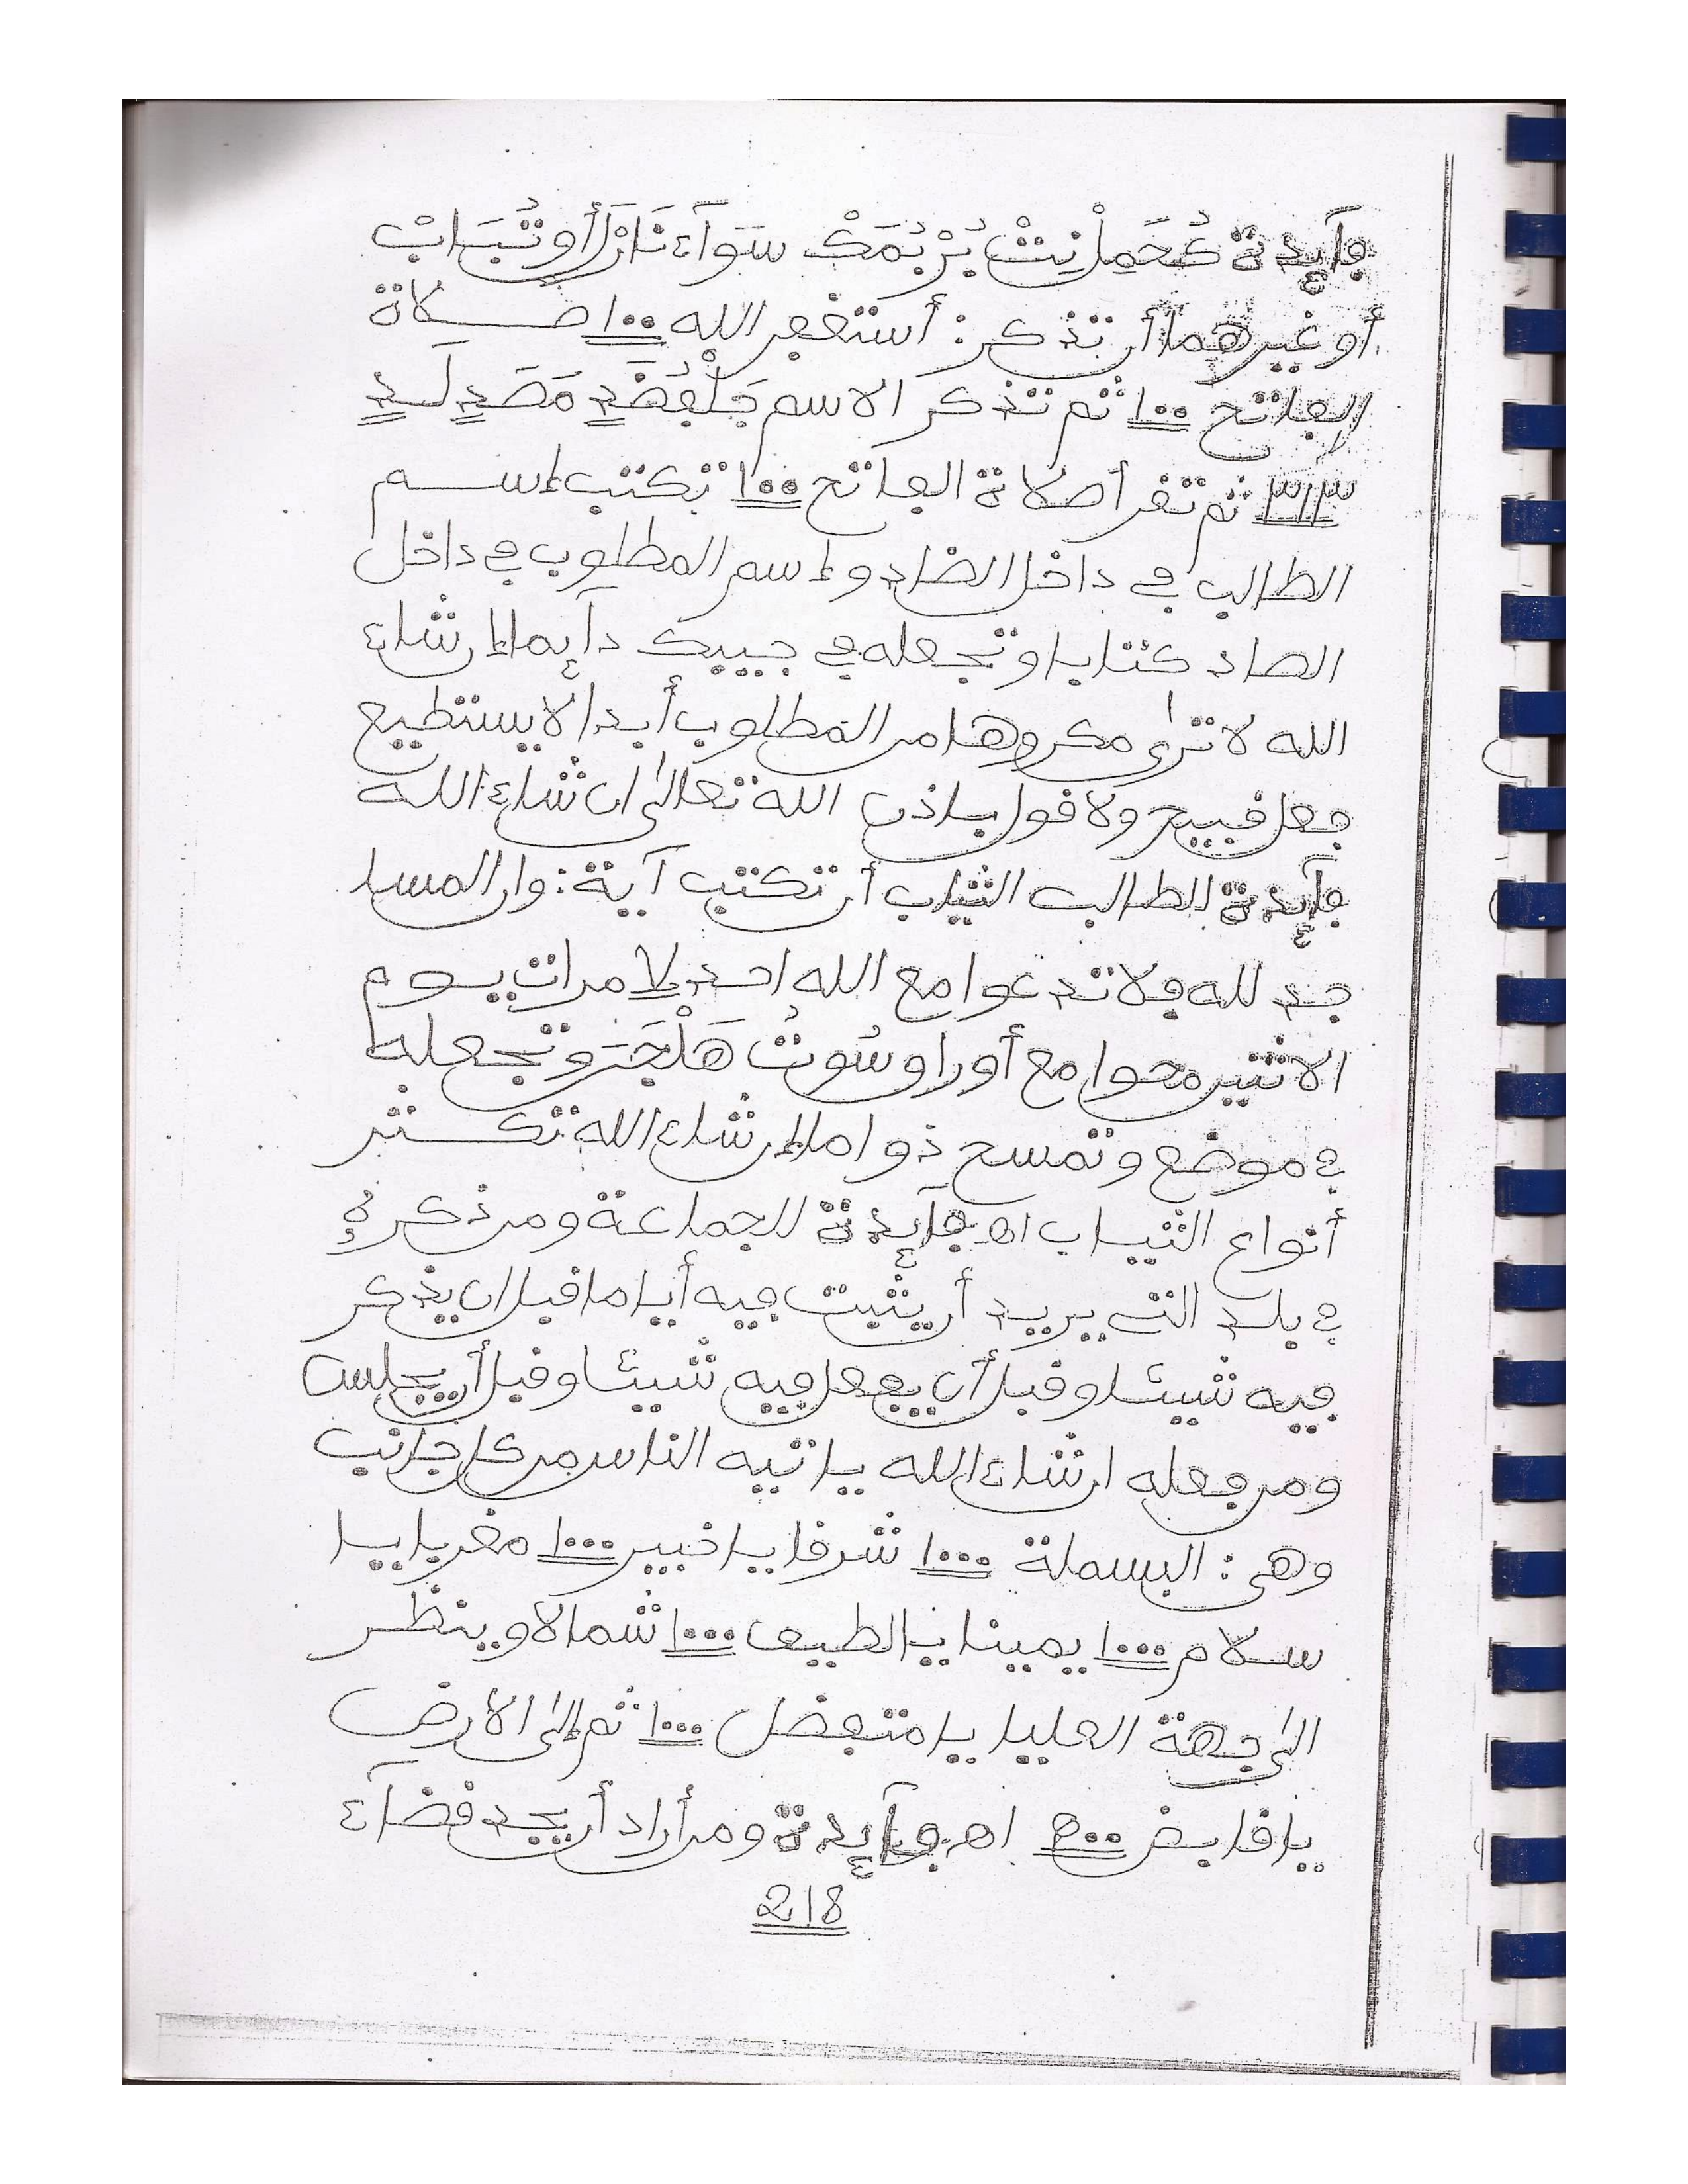 فآئدة كُحَمِلْ نِتْ بُرْ بُمَكْ سَوَآء نَارْ أو تُبَابْ
أو غيرهما أن تذكر : أستغفر الله ١٠٠ صلاة
الفاتح ١٠٠ ثم تذكر الاسم
٣١٣ ثم تقرأ صلاة الفاتح ١٠٠ تكتب إسم
الطالب في داخل الضاد وإسم المطلوب في داخل
الصاد كتابا وتجعله في جيبك دآئما إن شاء
الله لا ترى مكروها من المطلوب أبدا لا يستطيع
فعل قبيح ولا قول باذن الله تعالى ان شاء الله
فآئدة لطالب الثياب أن تكتب آية : وان المسا
جد لله فلا تدعوا مع الله احد لا مرات يوم
الاثنين محوا مع أوراو سُوتُ هَلْجَرَ وتجعله
في موضع وتمسح ذواما إن شاء الله تكثر
أنواع الثياب اه فآئدة للجماعة ومن ذكره
في بلد التي يريد أن يثبت فيه أياما قبل ان يذكر
فيه شيئا وقبل أن يفعل فيه شيئا وقبل أن يجلس
ومن فعله ان شاء الله ياتيه الناس من كل جانب
وهي : البسملة ١٠٠٠ شرقا يا خبير ١٠٠٠ مغربا يا
سلام ١٠٠٠ يمينا يا لطيف ١٠٠٠ شمالا وينظر
الى جهة العليا يا متفضل ١٠٠٠ ثم إلى الأرض
يا قابض اه فآئدة ومن أراد أن يجد قضآء
218